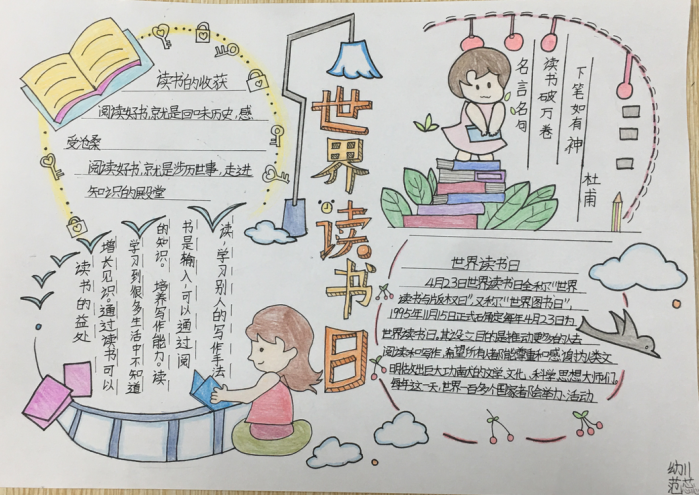 世界读书日
读书的收获
阅读好书,就是回味历史,感
受沧桑
阅读好书,就是步历世事,走进
知识的殿堂
名言名句
读书破万卷
下笔如有神
杜甫
读,学习别人的写作手法
书是输入,可以通过阅
的知识。培养写作能力。读
学习到很多生活中不知道
增长见识。通过读书可以
读书的益处
世界读书日
4月23日世界读书日全称"世界
读书与版权日",又称"世界图书日",
1995年11月15日正式确定每年4月23日为
世界读书日,其设立目的是推动更多的人去
阅读和写作,希望所有人都能尊重和感谢为人类文
明做出巨大功献的文学,文化,科学思想大师们。
每年这一天,世界一百多个国家都会举办活动
幼儿